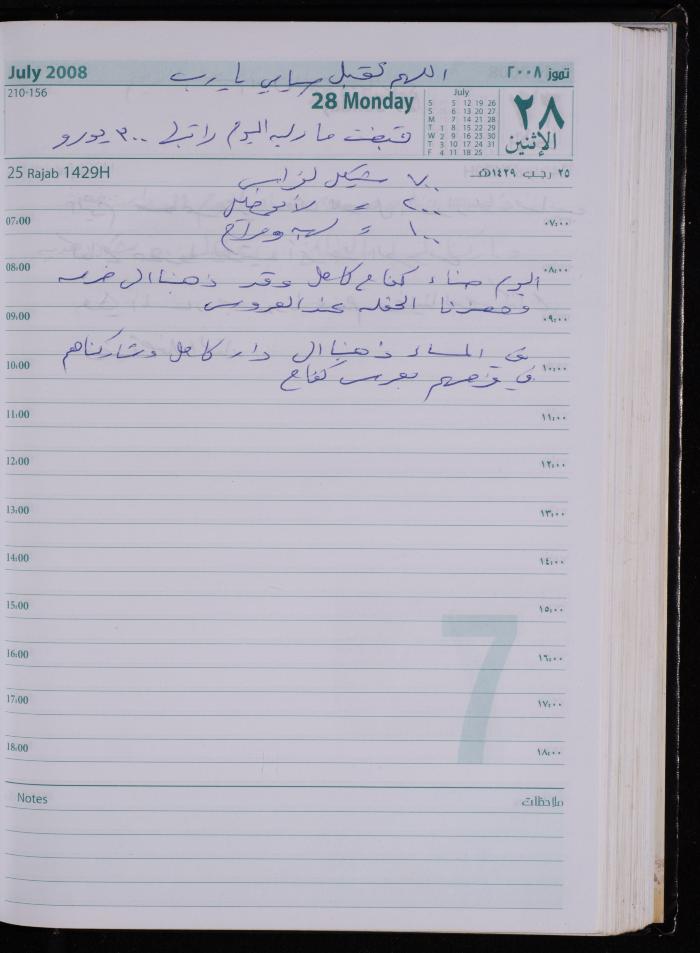 July 2008
تموز ٢٠٠٨
اللهم تقبل صيامي يا رب
210-156
28 Monday
July
S 5 12 19 26
S 6 13 20 27
M 7 14 21 28
T 1 8 15 22 29
W 2 9 16 23 30
T 3 10 17 24 31
F 4 11 18 25
٢٨
الإثنين
قبضت ماريه اليوم راتبها ٣٠٠ يورو
25 Rajab 1429H
٢٥ رجب ١٤٢٩هـ
٧٠٠ شيكل
٢٠٠ =
07:00 ٠٧:٠٠
١٠٠ =
08:00 ٠٨:٠٠
اليوم حناء كفاح كامل وقد ذهبنا ال
وحضرنا الحفله عند العروس
09:00 ٠٩:٠٠
في المساء ذهبنا ال دار كامل وشاركناهم
10:00 ١٠:٠٠
في فرحهم بعرس كفاح
11:00 ١١:٠٠
12:00 ١٢:٠٠
13:00 ١٣:٠٠
14:00 ١٤:٠٠
15:00 ١٥:٠٠
16:00 ١٦:٠٠
17:00 ١٧:٠٠
18:00 ١٨:٠٠
7
Notes
ملاحظات